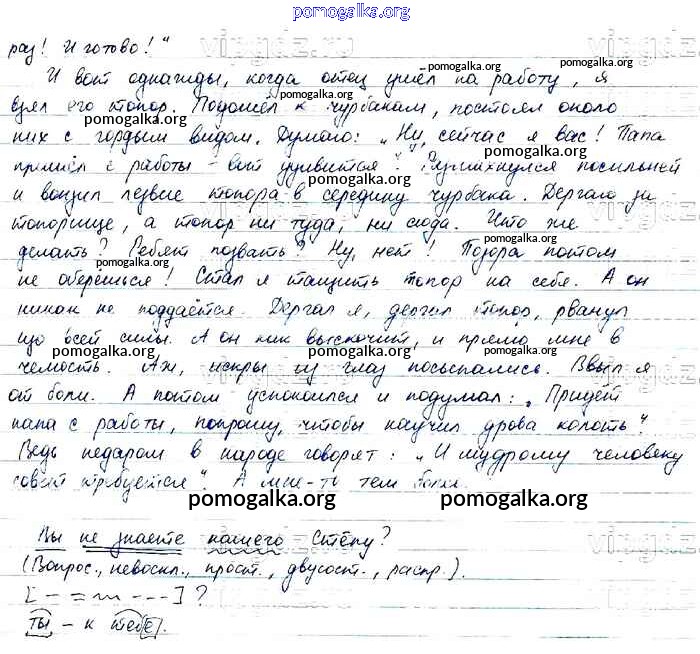 pomogalka.org
раз! И готово!"
И вот однажды, когда отец ушёл на работу, я
взял его топор. Подошёл к чурбакам, постоял около
них с гордым видом. Думаю: „Ну, сейчас я вас! Папа
пришёл с работы – вот удивится". Размахнулся посильней
и вонзил лезвие топора в середину чурбака. Дергаю за
топорище, а топор ни туда, ни сюда. Что же
делать? Ребят позвать? Ну, нет! Позора потом
не оберёшься! Стал я тащить топор на себе. А он
никак не поддаётся. Дергал я, дергал топор, рванул
що всей силы. А он как выскочит, и прямо мне в
челюсть. Аж, искры из глаз посыпались. Взвыл я
от боли. А потом успокоился и подумал: „Придет
папа с работы, попрошу, чтобы научил дрова колоть".
Ведь недаром в народе говорят: „И мудрому человеку
совет требуется". А мне-то тем более.
pomogalka.org
Вы не знаете нашего Стёпу?
(Вопрос., невоскл., прост., двусост., распр.).
[– = ~~ - - -]?
ты – к тебе.